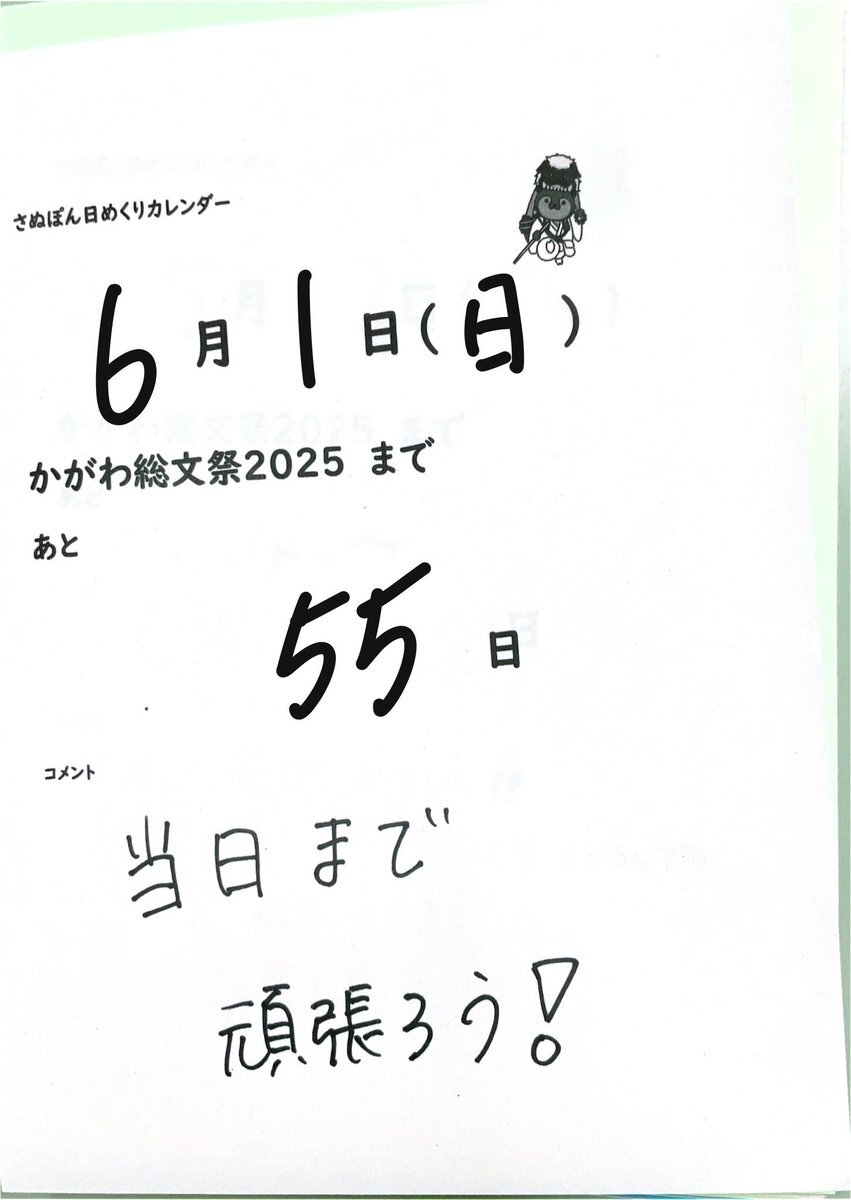 さぬぽん日めくりカレンダー
6月1日(日)
かがわ総文祭2025 まで
あと
55日
コメント
当日まで
頑張ろう!